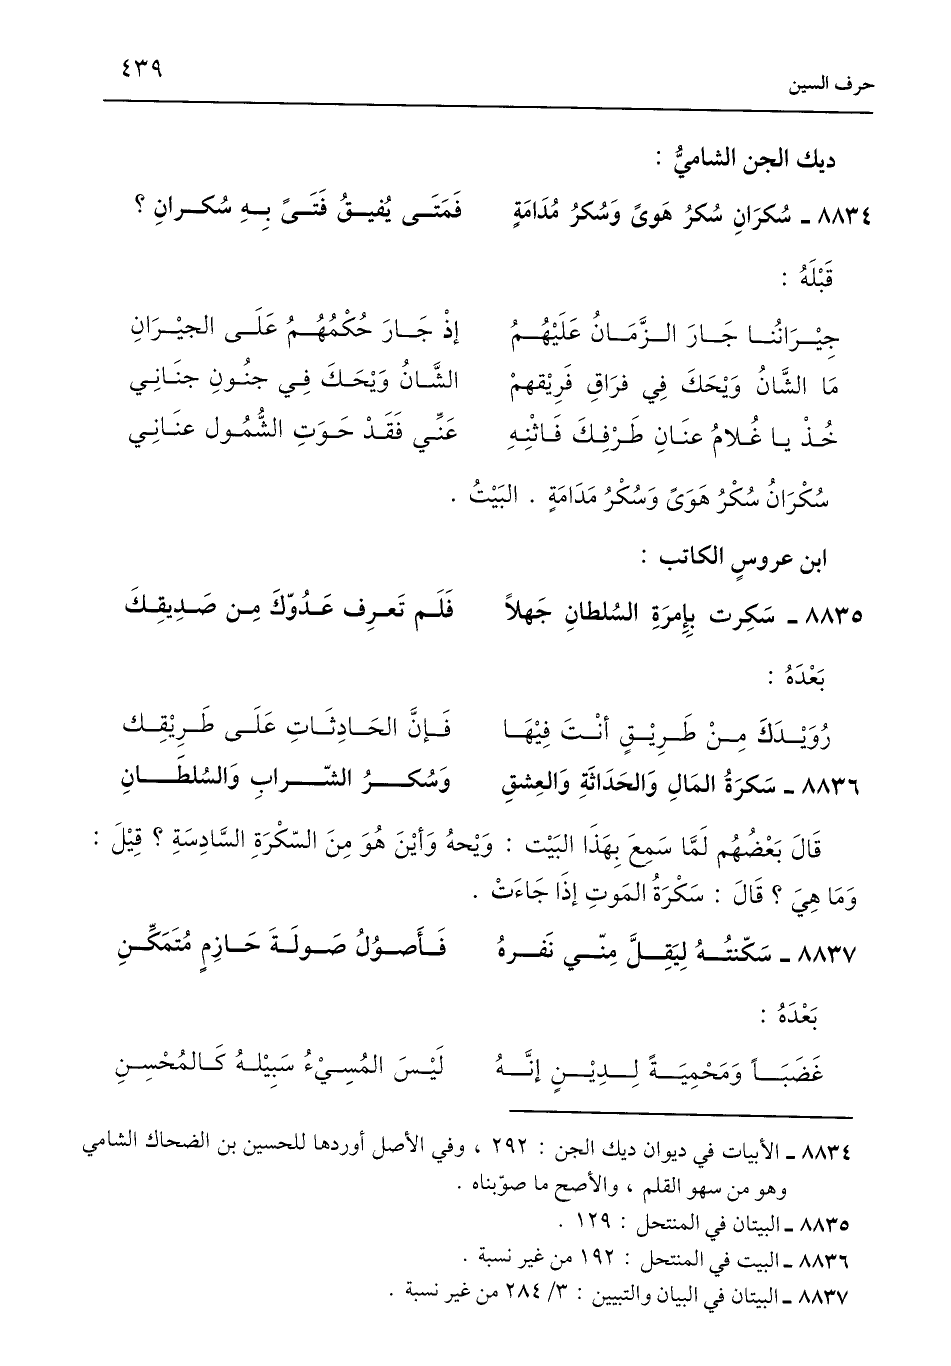 ٤٣٩
حرف السين
ديك الجن الشاميُّ :
٨٨٣٤ ـ سُكرَانِ سُكرُ هَوىً وَسُكرُ مُدَامَةٍ فَمَتَـى يُفيـقُ فَتَـىً بِـهِ سُكـرانِ ؟
قَبْلَهُ :
جِيْـرَانُنَـا جَـارَ الـزَّمَـانُ عَلَيْهُـمُ إذْ جَـارَ حُكْمُهُـمُ عَلَـى الجِيْـرَانِ
مَا الشَّانُ وَيْحَكَ فِي فرَاقِ فَرِيْقهمْ الشَّـانُ وَيْحَـكَ فِـي جنُـونِ جنَـانِـي
خُـذْ يـا غُـلامُ عنَـانِ طَـرْفِـكَ فَـاثْنِـهِ عَنِّـي فَقَـدْ حَـوَتِ الشُّمُـولِ عنَـانِـي
سُكْرَانُ سُكْرُ هَوَىً وَسُكْرُ مَدَامَةٍ . البَيْتُ .
ابن عروسٍ الكاتب :
٨٨٣٥ ـ سَكِرت بِإمرَةِ السُلطانِ جَهلاً فَلَـم تَعـرِف عَـدُوّكَ مِـن صَـدِيقِـكَ
بَعْدَهُ :
رُوَيْـدَكَ مِـنْ طَـرِيْـقٍ أنْـتَ فِيْهَـا فَـإنَّ الحَـادِثَـاتِ عَلَـى طَـرِيْقِـك
٨٨٣٦ ـ سَكرَةُ المَالِ وَالحَدَاثَةِ وَالعِشقِ وَسُكـرُ الشّـرابِ وَالسُلطَـانِ
قَالَ بَعْضُهُم لَمَّا سَمِعَ بِهَذَا البَيْت : وَيْحهُ وَأيْنَ هُوَ مِنَ السّكْرَةِ السَّادِسَةِ ؟ قِيْلَ :
وَمَا هِيَ ؟ قَالَ : سَكْرَةُ المَوتِ إذَا جَاءَتْ .
٨٨٣٧ ـ سَكّنتُـهُ لِيَقِـلَّ مِنّـي نَفـرهُ فَـأصـوُلُ صَـولَـةَ حَـازِمٍ مُتَمَكِّـنِ
بَعْدَهُ :
غَضَبَـاً وَمَحْمِيَـةً لِـدِيْـنٍ إنَّـهُ لَيْـسَ المُسِـيْءُ سَبِيْلـهُ كَـالمُحْسِـنِ
٨٨٣٤ ـ الأبيات في ديوان ديك الجن : ٢٩٢ ، وفي الأصل أوردها للحسين بن الضحاك الشامي
وهو من سهو القلم ، والأصح ما صوّبناه .
٨٨٣٥ ـ البيتان في المنتحل : ١٢٩ .
٨٨٣٦ ـ البيت في المنتحل : ١٩٢ من غير نسبة .
٨٨٣٧ ـ البيتان في البيان والتبيين : ٣/ ٢٨٤ من غير نسبة .